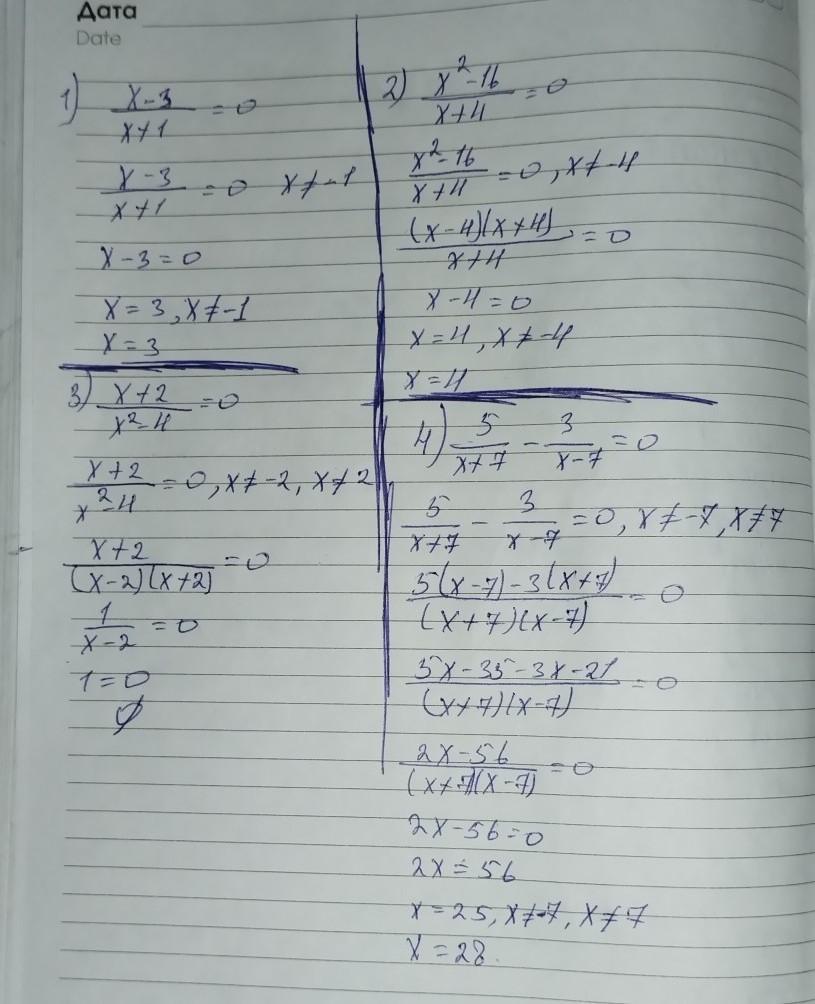 Дата
Date
1) (x-3)/(x+1) = 0
(x-3)/(x+1) = 0 x≠-1
x-3=0
x=3, x≠-1
x=3
2) (x²-16)/(x+4) = 0
(x²-16)/(x+4) = 0, x≠-4
((x-4)(x+4))/(x+4) = 0
x-4=0
x=4, x≠-4
x=4
3) (x+2)/(x²-4) = 0
(x+2)/(x²-4) = 0, x≠-2, x≠2
(x+2)/((x-2)(x+2)) = 0
1/(x-2) = 0
1=0
∅
4) 5/(x+7) - 3/(x-7) = 0
5/(x+7) - 3/(x-7) = 0, x≠-7, x≠7
(5(x-7)-3(x+7))/((x+7)(x-7)) = 0
(5x-35-3x-21)/((x+7)(x-7)) = 0
(2x-56)/((x+7)(x-7)) = 0
2x-56=0
2x=56
x=25, x≠-7, x≠7
x=28.